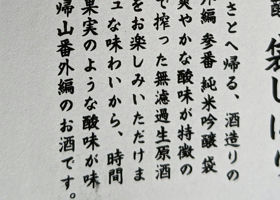 袋しぼり
さとへ帰る、酒造りの
外編 参番 純米吟醸 袋
爽やかな酸味が特徴の
で搾った無濾過生原酒
をお楽しみいただけま
ュな味わいから、時間
果実のような酸味が味
帰山番外編のお酒です。